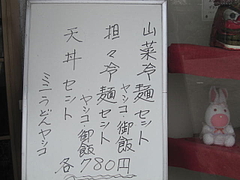 山菜冷麺セット
ヤシコ御飯
担々冷麺セント
ヤシコ御飯
天丼セント
ミニうどんヤシコ
各780円